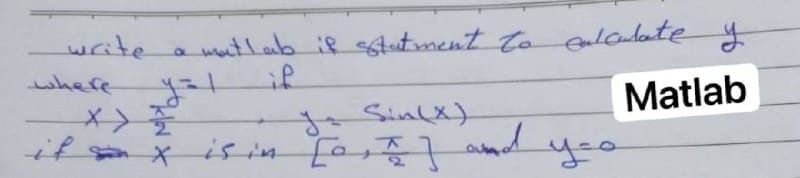 write a matlab if statment to calculate y
where y=1 if
x > π/2 , y = Sin(x)
if x is in [0, π/2] and y=0
Matlab